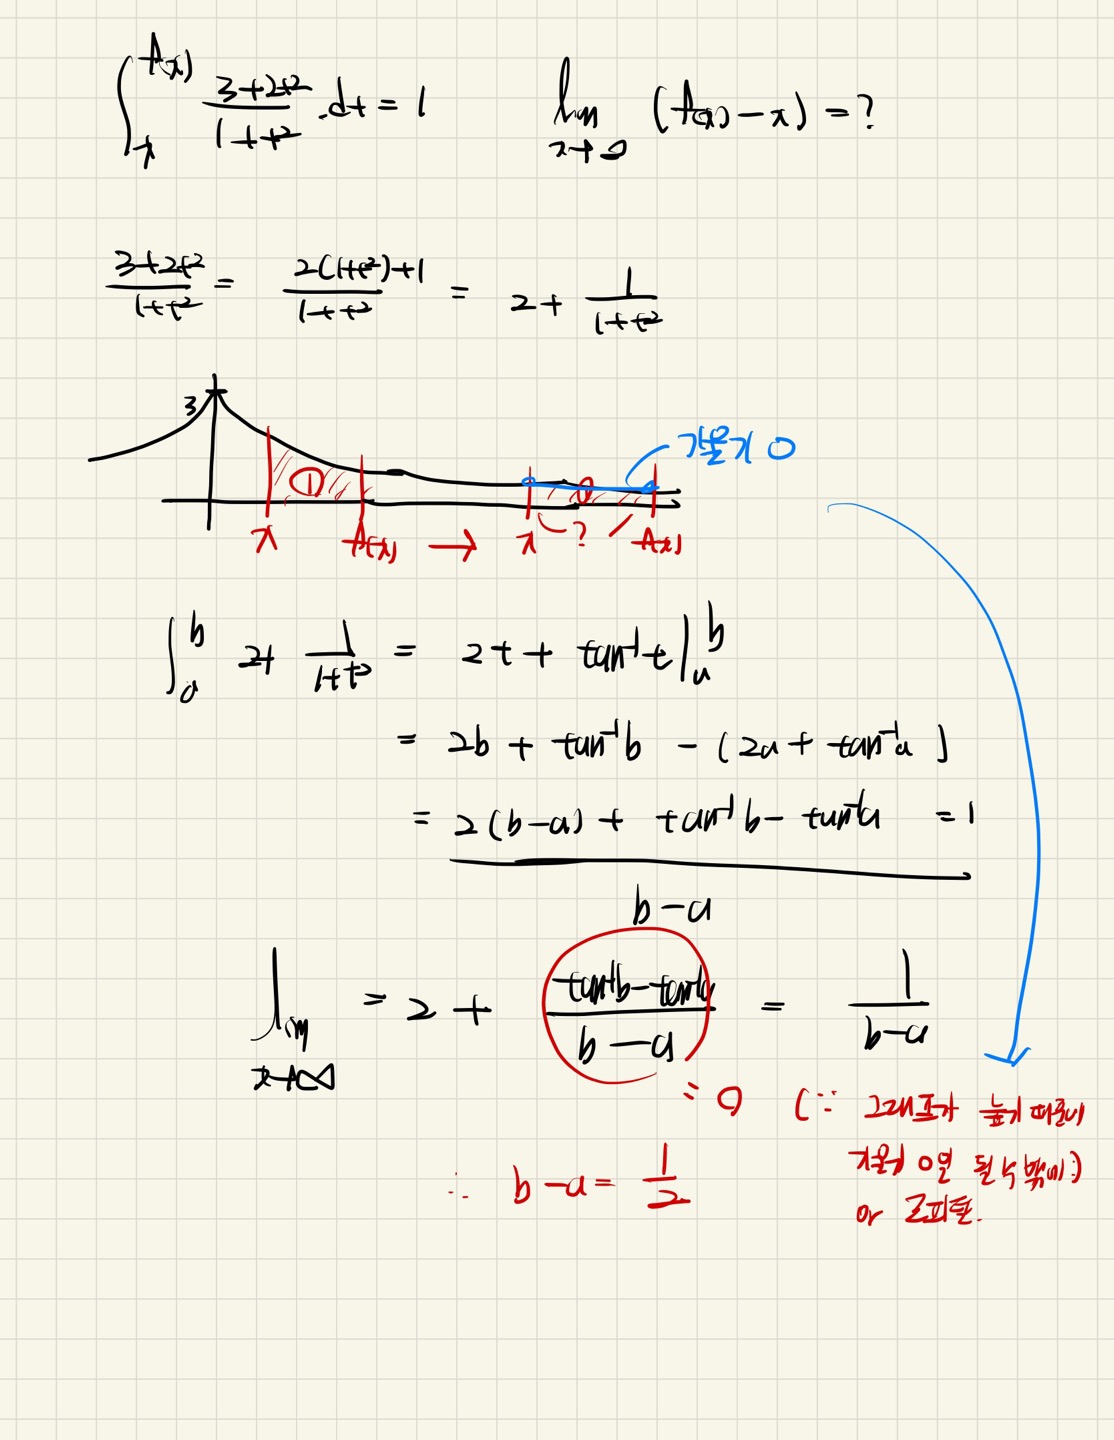 ∫_x^{f(x)} (3+2t²)/(1+t²) · dt = 1    lim_{x→∞} (f(x)-x) = ?
(3+2t²)/(1+t²) = (2(1+t²)+1)/(1+t²) = 2 + 1/(1+t²)
3
기울기 0
① 
x f(x) → x ? f(x)
∫_a^b 2+ 1/(1+t²) = 2t + tan⁻¹t |_a^b
= 2b + tan⁻¹b - (2a + tan⁻¹a)
= 2(b-a) + tan⁻¹b - tan⁻¹a = 1
b-a
lim_{x→∞} = 2 + (tan⁻¹b - tan⁻¹a)/(b-a) = 1/(b-a)
= 0 (∵ 그래프가 눕기 때문에
기울기 0일 될 수 밖에:)
or 로피탈.
∴ b-a = 1/2